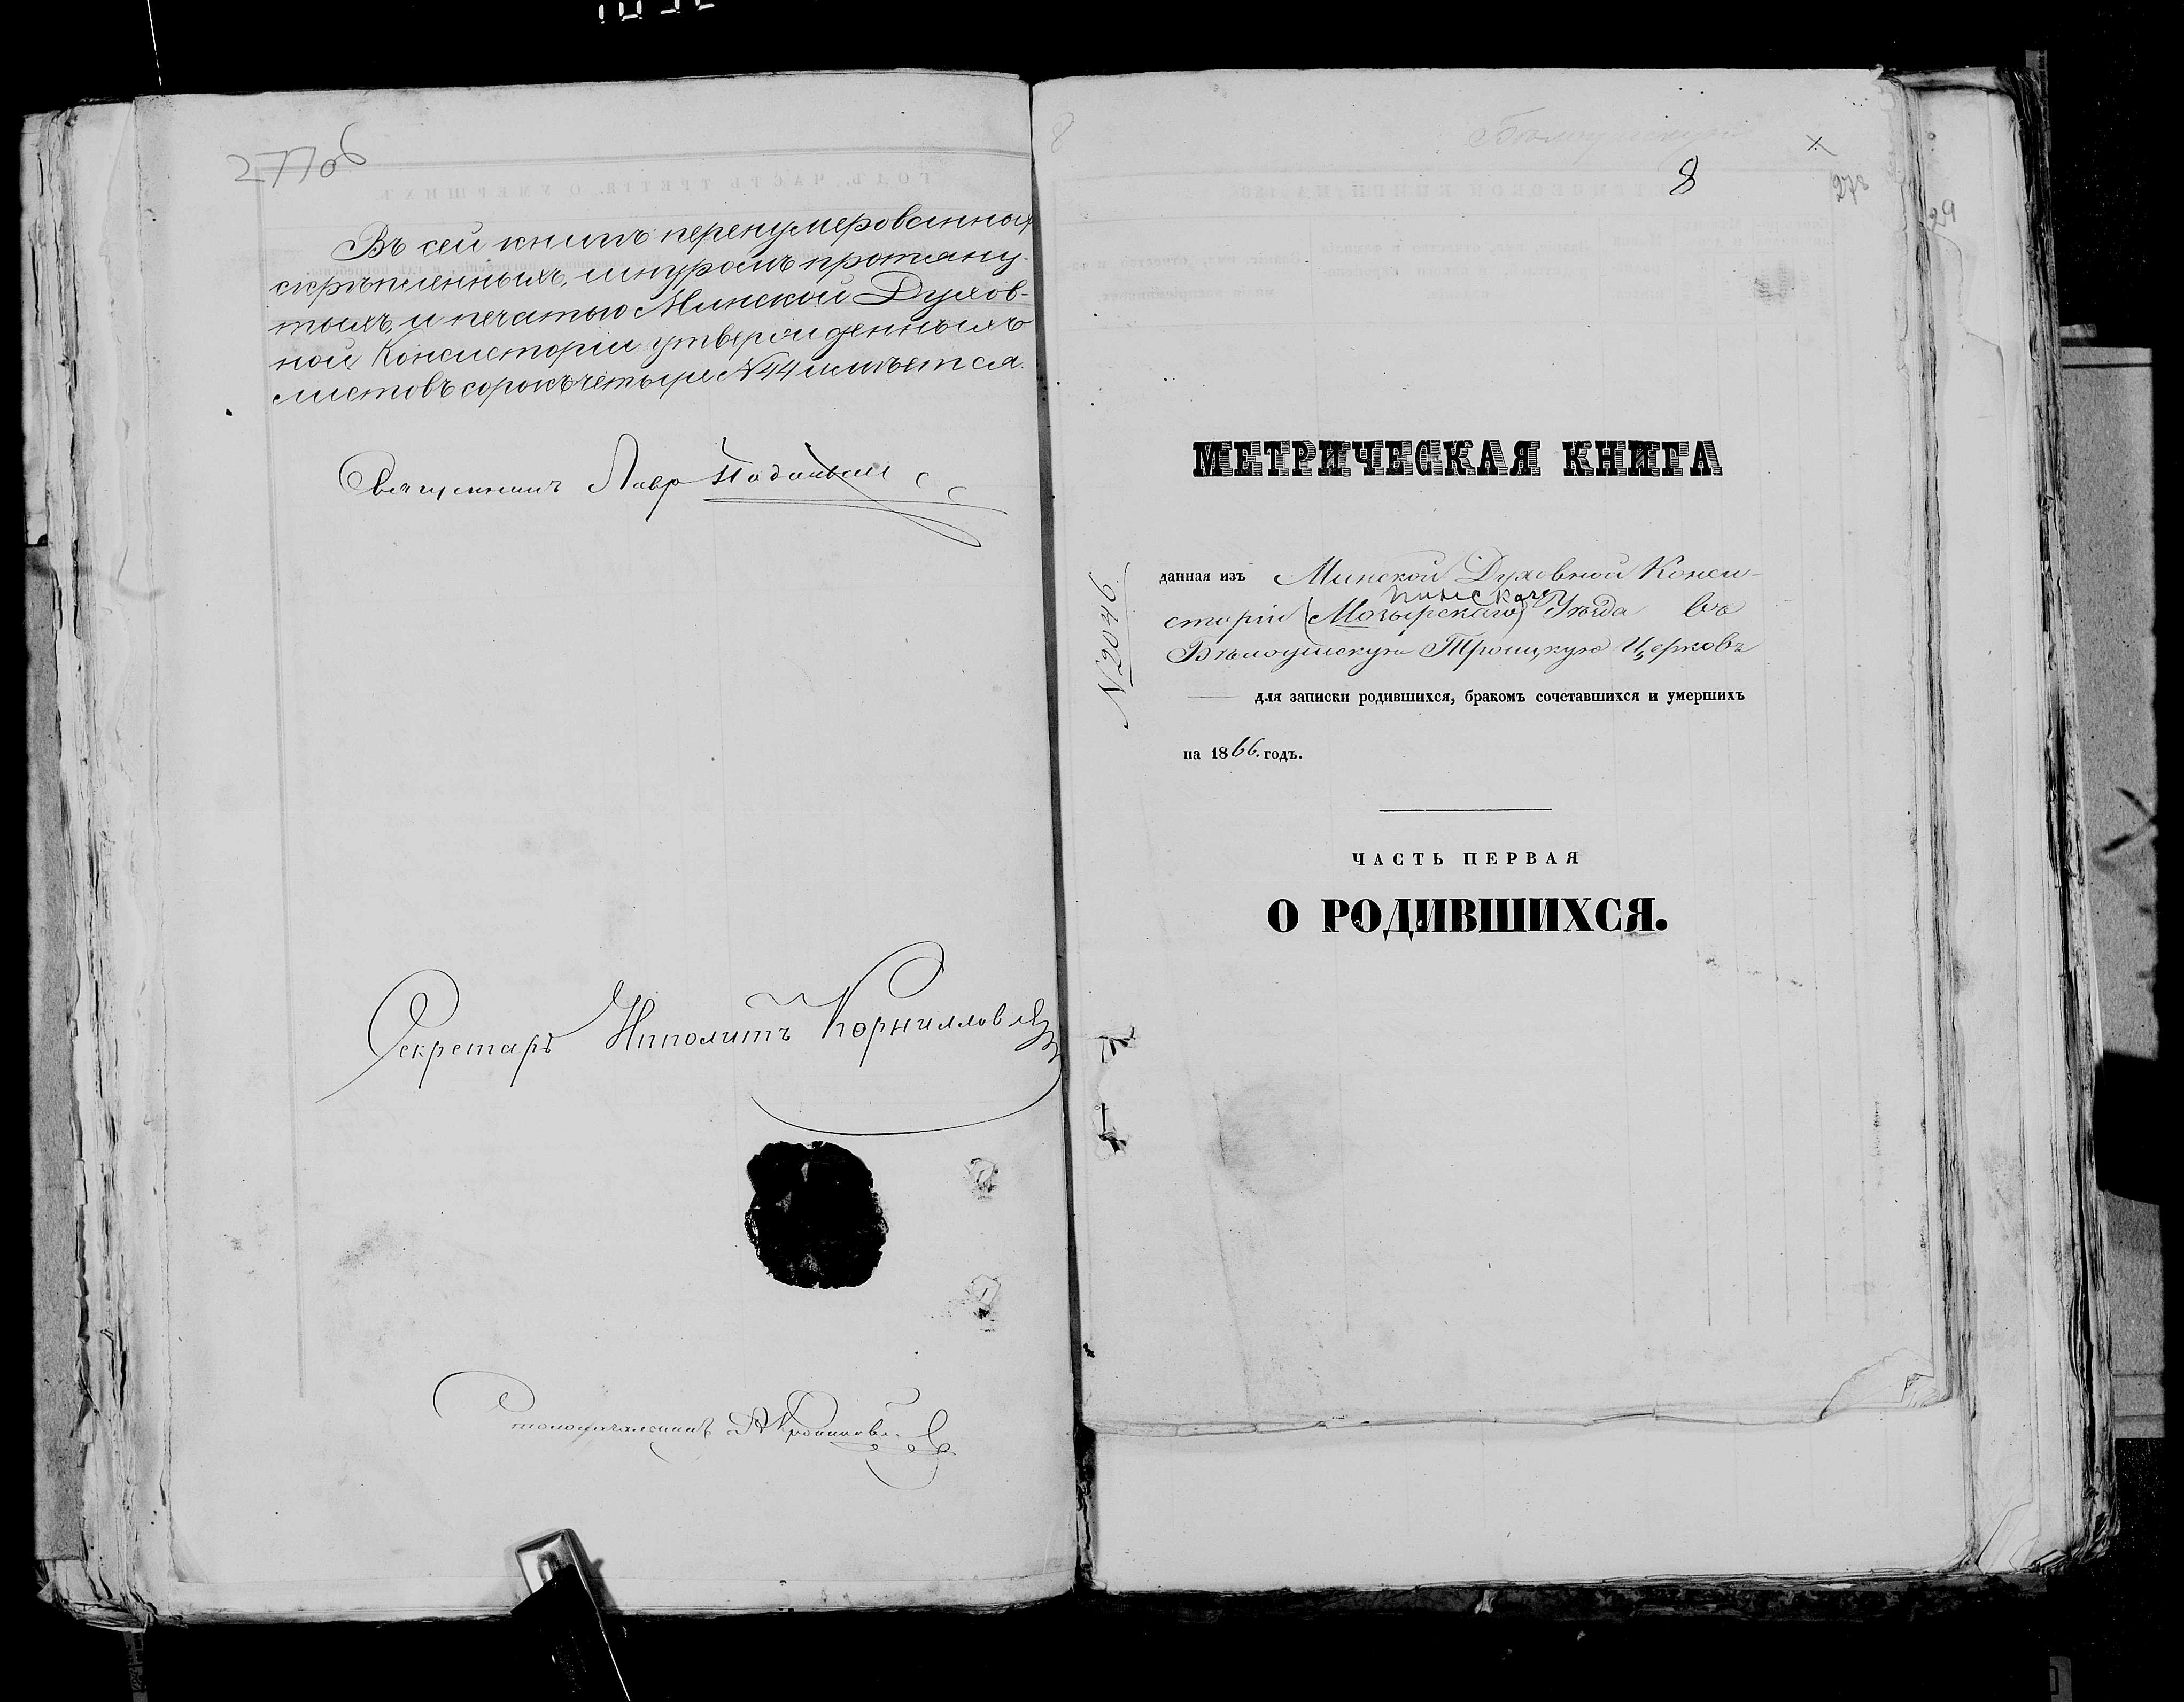 277об
Въ сей книгѣ перенумерованныхъ
скрѣпленныхъ, шнуромъ протяну-
тыхъ, и печатью Минской Духов-
ной Консисторіи утвержденныхъ
листовъ сорокъ четыре №44 имѣется.
Священникъ Лавр
Секретарь Иполитъ Корнилловъ
Столоначальникъ
8
278
29
МЕТРИЧЕСКАЯ КНИГА
№2046.
данная изъ Минской Духовной Конси-
Пинскаго
сторіи (Мозырскаго) Уѣзда въ
Бѣлоушскую Троицкую Церковь
для записки родившихся, бракомъ сочетавшихся и умершихъ
на 1866. годъ.
ЧАСТЬ ПЕРВАЯ
О РОДИВШИХСЯ.